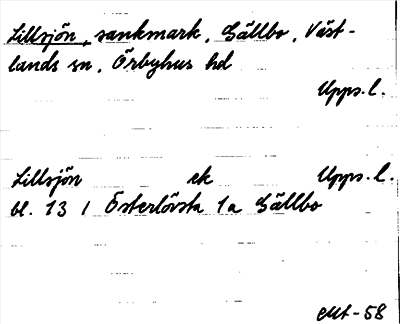 Lillsjön, sankmark, Sällbo, Väst-
lands sn, Örbyhus hd
Upps. l.
Lillsjön ek Upps. l.
bl. 13 / Österlövsta 1a Sällbo
-58